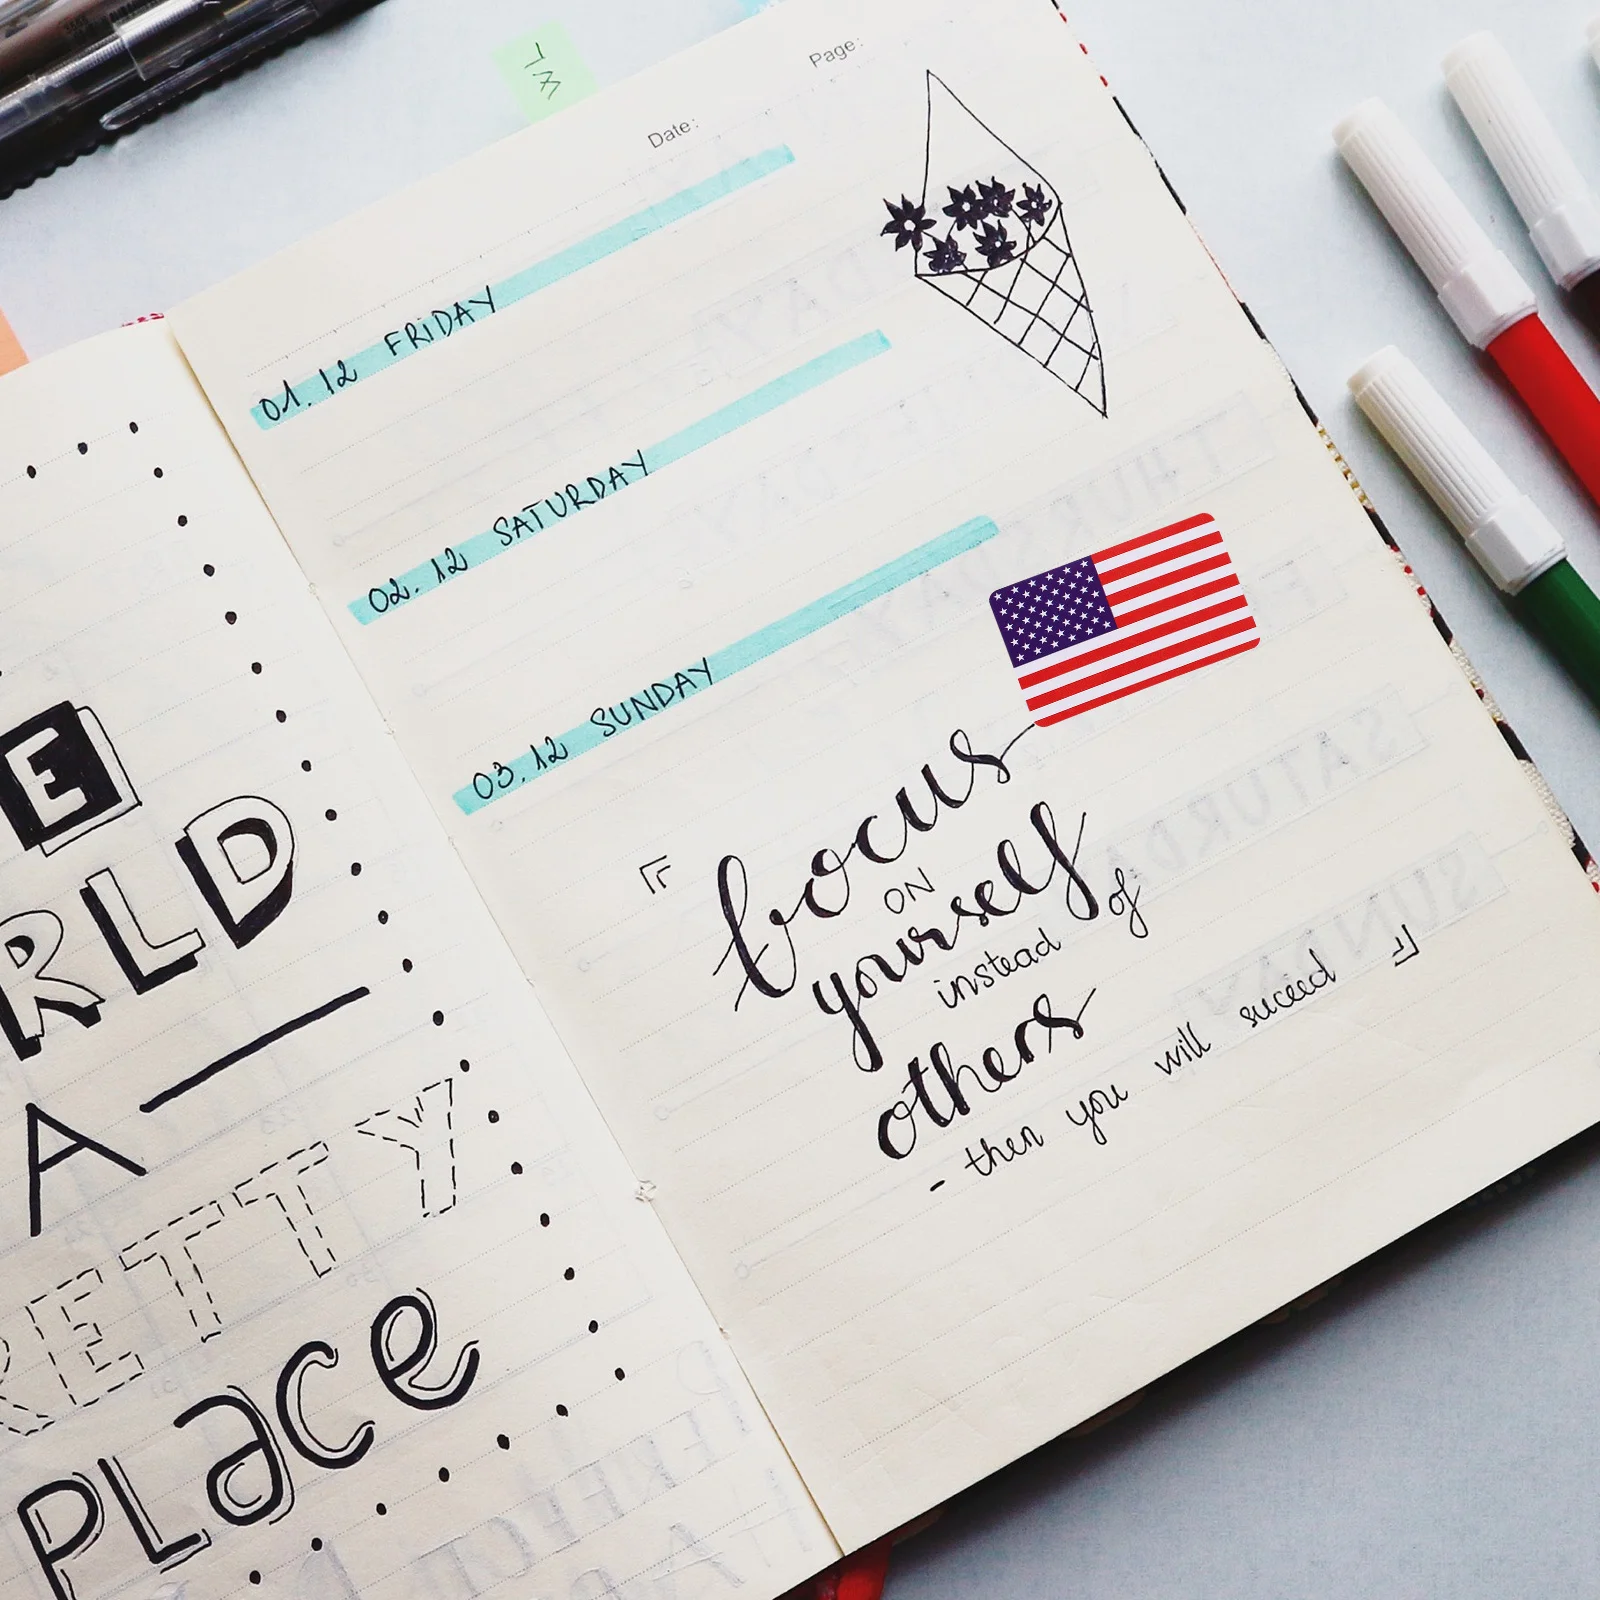 E
RLD
A
RETTY
PLace
Date:
Page:
01.12 FRIDAY
02.12 SATURDAY
03.12 SUNDAY
focus
ON
yourself
instead of
others
- then you will suceed